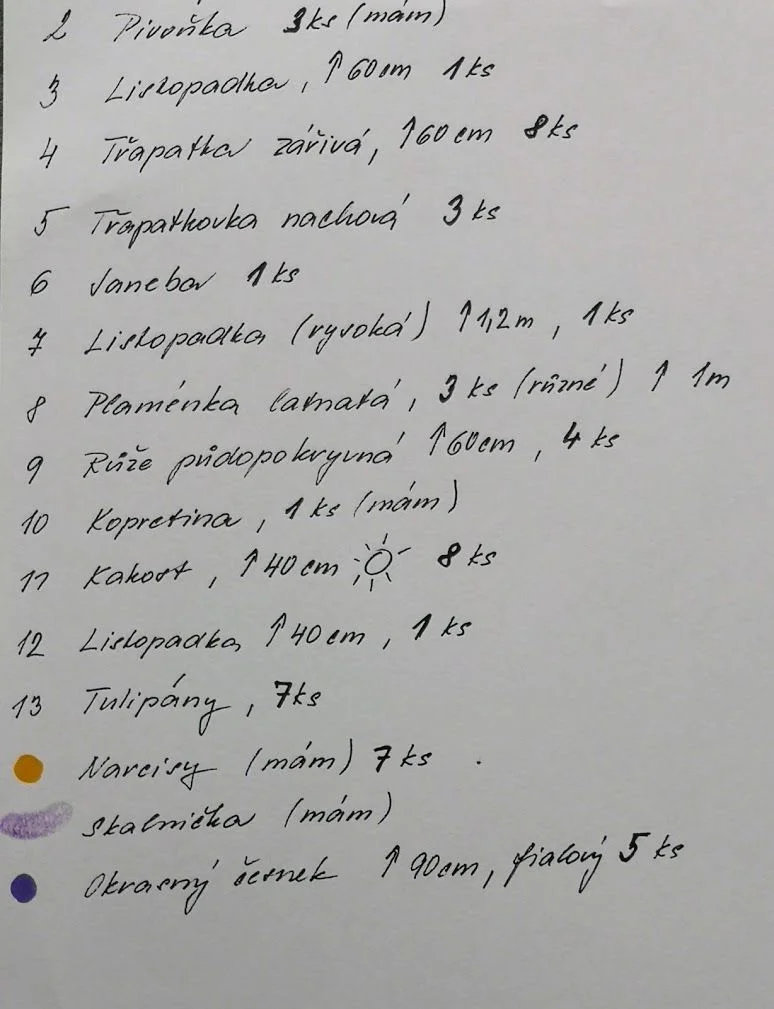 2 Pivoňka 3ks (mám)
3 Listopadka, ↑60cm 1ks
4 Třapatka zářivá, ↑60cm 8ks
5 Třapatkovka nachová 3 ks
6 Janeba 1ks
7 Listopadka (vysoká) ↑1,2m, 1ks
8 Plaménka latnatá, 3 ks (různé) ↑ 1m
9 Růže půdopokryvná ↑60cm, 4 ks
10 Kopretina, 1 ks (mám)
11 Kakost, ↑40cm 8 ks
12 Listopadka ↑40cm, 1 ks
13 Tulipány, 7ks
Narcisy (mám) 7 ks
Skalnička (mám)
Okrasný česnek ↑90cm, fialový 5 ks